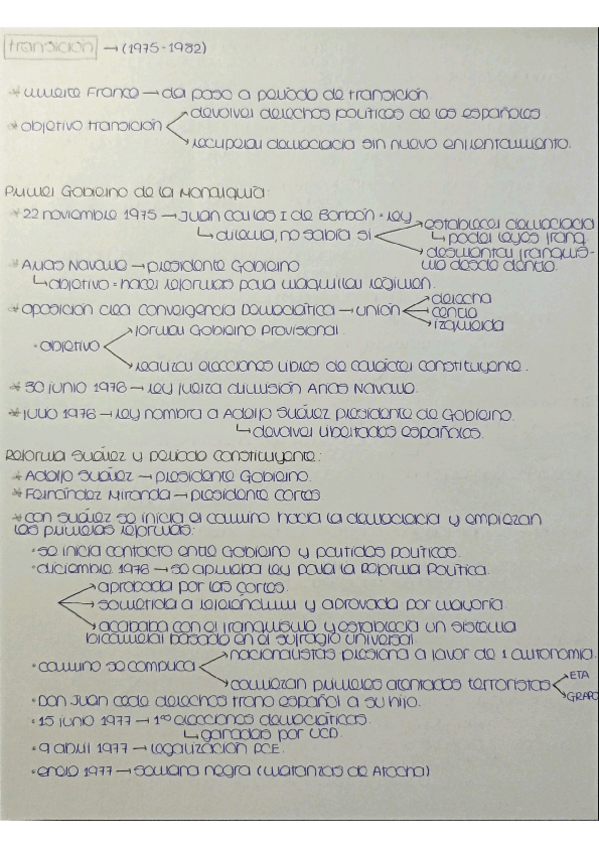 transición → (1975-1982)
* muerte Franco → da paso a periodo de transición
* objetivo transición
devolver derechos políticos de los españoles
recuperar democracia sin nuevo enfrentamiento.
Primer Gobierno de la Monarquía:
* 22 noviembre 1975 → Juan Carlos I de Borbón = rey
↳ dilema, no sabía si
establecer democracia
↳ poder leyes franq.
desmontar franquis-
mo desde dentro.
* Arias Navarro → presidente Gobierno
↳ objetivo = hacer reformas para maquillar régimen.
* oposición crea Convergencia Democrática → unión
derecha
centro
izquierda
· objetivo
formar Gobierno Provisional.
realizar elecciones libres de carácter constituyente.
* 30 junio 1976 → rey fuerza dimisión Arias Navarro.
* julio 1976 → rey nombra a Adolfo Suárez presidente de Gobierno.
↳ devolver libertades españoles.
Reforma Suárez y periodo constituyente:
* Adolfo Suárez → presidente Gobierno.
* Fernández Miranda → presidente Cortes
* con Suárez se inicia el camino hacia la democracia y empiezan
las primeras reformas:
· se inicia contacto entre Gobierno y partidos políticos.
· diciembre 1976 → se aprueba ley para la Reforma Política.
aprobada por las Cortes.
sometida a referéndum y aprovada por mayoría
acababa con el franquismo y establecía un sistema
bicameral basado en el sufragio universal
· camino se complica
nacionalistas presiona a favor de 1 autonomía.
comienzan primeros atentados terroristas
ETA
GRAPO
· Don Juan cede derechos trono español a su hijo.
· 15 junio 1977 → 1ªs elecciones democráticas.
↳ ganadas por UCD.
· 9 abril 1977 → legalización PCE.
· enero 1977 → semana negra (matanzas de Atocha)